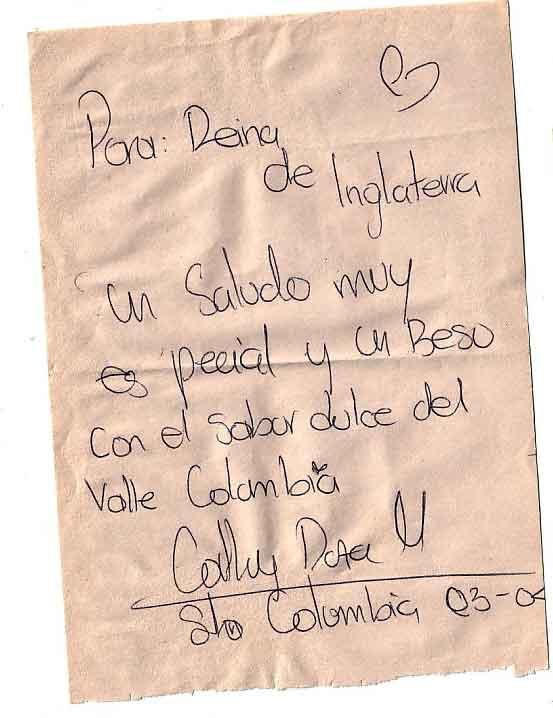 Para: Reina
de Inglaterra
un Saludo muy
especial y un Beso
con el sabor dulce del
Valle Colombia
Cathy
Colombia 03-0